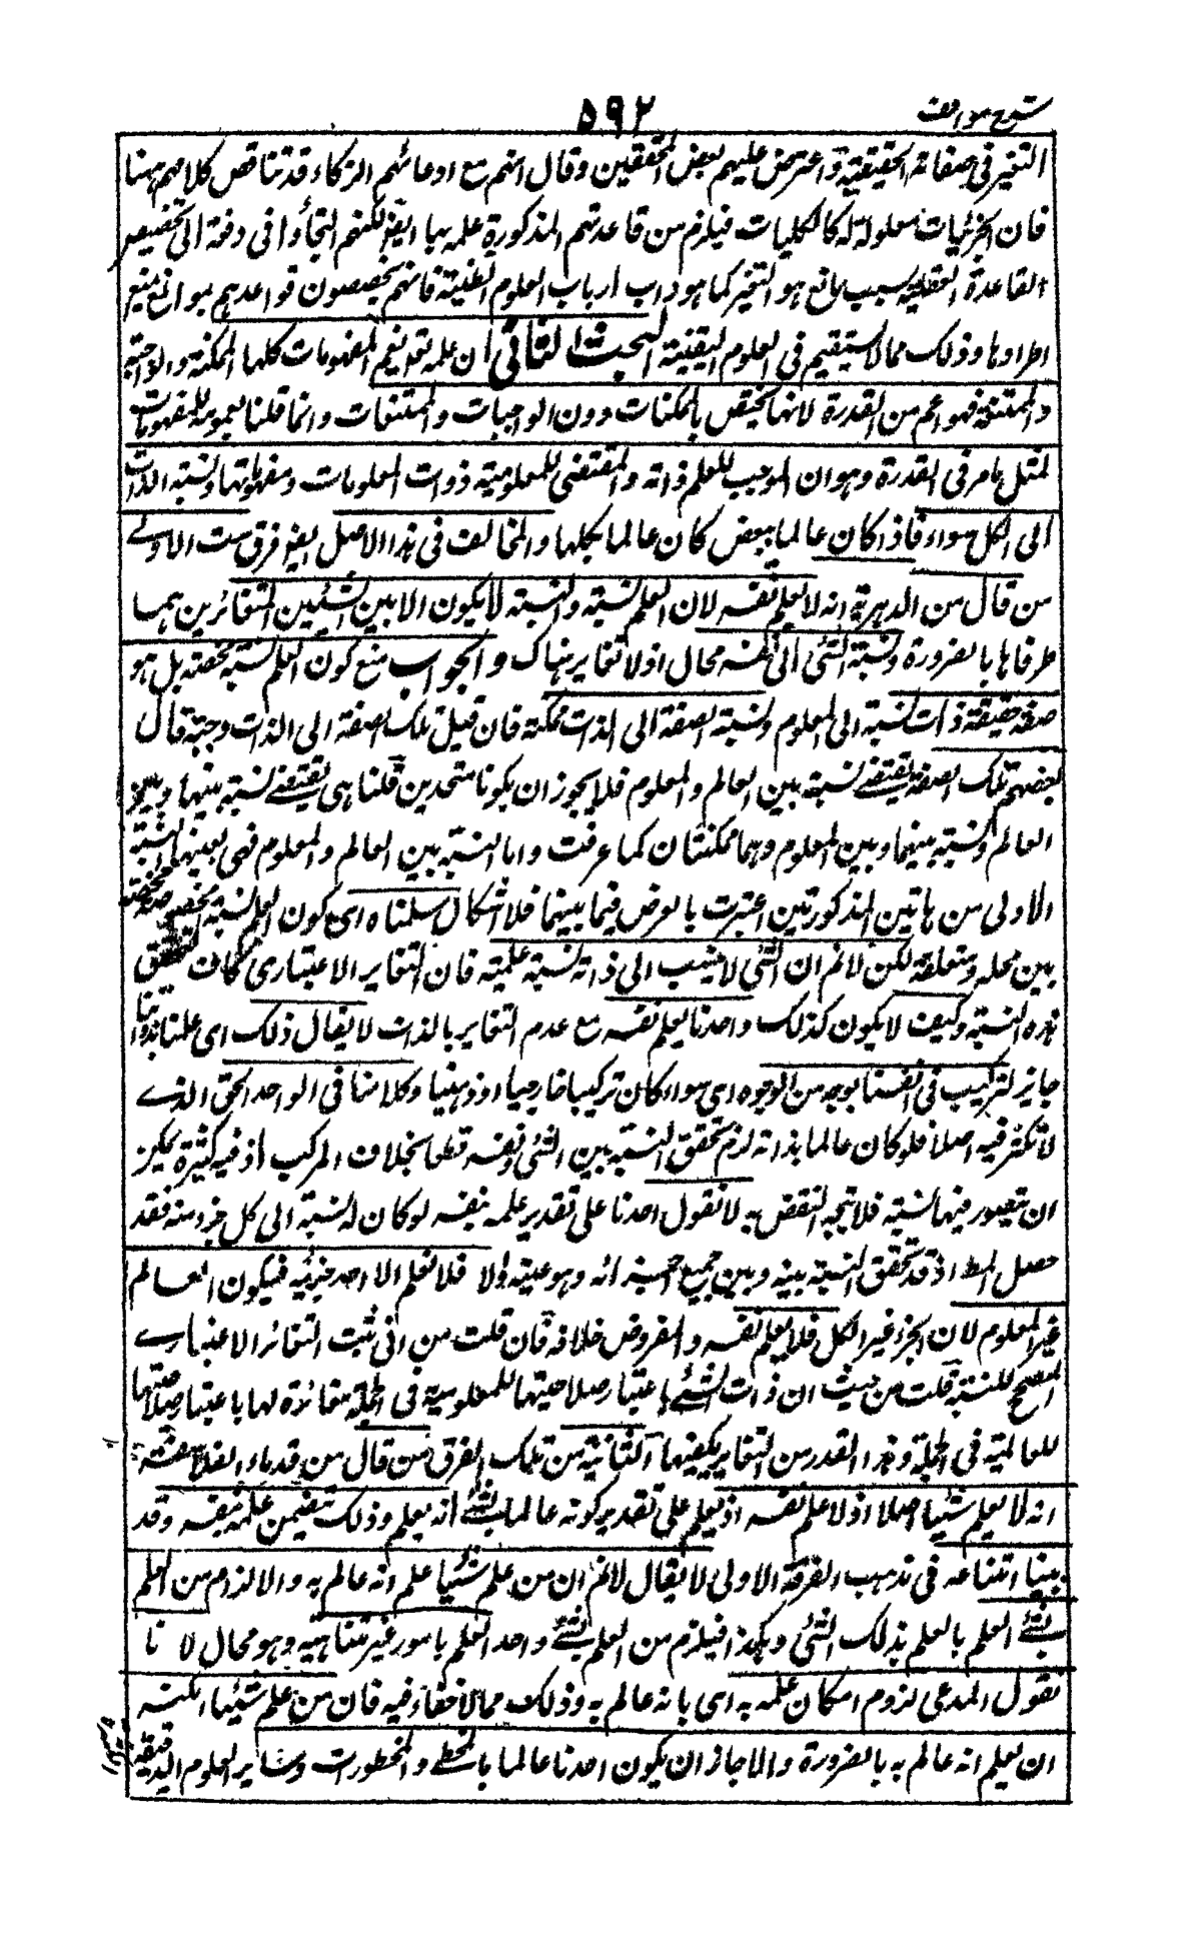 شرح مواقف
٥٩٢
التغير فى صفاته الحقيقية واعترض عليهم بعض المحققين وقال انهم مع ادعائهم الزكاء قد تناقض كلامهم ههنا
فان الجزئيات معلولة له كالكليات فيلزم من قاعدتهم المذكورة علمه بها ايض لكنهم التجأوا فى دفعة الى تخصيص
القاعدة العقلية بسبب مانع هو التغير كما هو داب ارباب العلوم الظنية فانهم يخصصون قواعدهم بموانع تمنع
اطرادها وذلك مما لا يستقيم فى العلوم اليقينية البحث الثانى ان علمه تعم يعم المفهومات كلها الممكنة والواجبة
والممتنعة فهو اعم من القدرة لانها تختص بالممكنات دون الواجبات والممتنعات وانما قلنا بعمومه للمفهومات
لمثل ما مر فى القدرة وهو ان الموجب للعلم ذاته والمقتضى للمعلومية ذوات المعلومات ومفهوماتها ونسبة الذات
الى الكل سواء فاذا كان عالما ببعض كان عالما بكلها والمخالف فى هذا الاصل ايض فرق ست الاولے
من قال من الدهرية انه لا يعلم نفسه لان العلم نسبة والنسبة لا يكون الا بين الشيئين المتغائرين هما
طرفاها بالضرورة ونسبة الشئ الى نفسه محال اذ لا تغاير هناك والجواب منع كون العلم نسبة محضة بل هو
صفة حقيقة ذات نسبة الى المعلوم ونسبة الصفة الى الذات ممكنة فان قيل تلك الصفة الى الذات وجبة قال
بعضهم تلك الصفة يقتضے نسبة بين العالم والمعلوم فلا يجوز ان يكونا متحدين قلنا هى يقتضے نسبة بينها وبين
العالم ونسبة بينهما وبين المعلوم وهما ممكنتان كما عرفت واما النسبة بين العالم والمعلوم فهى بعينها النسبة
الاولى من هاتين المذكورتين اعتبرت بالعرض فيما بينهما فلا اشكال سلمناه اى كون العلم نسبة محضة
بين محله ومتعلقه لكن لا نم ان الشئ لا ينسب الى ذاته نسبة علمية فان التغاير الاعتبارى كاف لتحقق
هذه النسبة وكيف لا يكون كذلك واحدنا يعلم نفسه مع عدم التغاير بالذات لا يقال ذلك اى علمنا بذواتنا
جايز لتركيب فى انفسنا بوجه من الوجوه اى سواء كان تركيبا خارجيا او ذهنيا وكلامنا فى الواحد الحق الذے
لا تكثر فيه اصلا فلو كان عالما بذاته لزم تحقق النسبة بين الشئ ونفسه قطعا بخلاف المركب اذ فيه كثرة يمكن
ان يتصور فيها نسبة فلا يتجه النقض به لا نقول احدنا على تقدير علمه بنفسه لو كان له نسبة الى كل جزء منه فقد
حصل المط اذ قد تحقق النسبة بينه وبين جميع اجزائه وهو عينه والا فلا نعلم الا احد جزئيه فيكون العالم
غير المعلوم لان الجزء غير الكل فلا يعلم نفسه والمفروض خلافه فان قلت من انى ثبت التغائر الاعتبارے
المصحح للنسبة قلت من حيث ان ذات الشئے باعتبار صلاحيتها للمعلومية فى الجملة مغائرة لها باعتبار صلاحيتها
للعالمية فى الجملة وهذا القدر من التغاير يكفينها الثانية من تلك الفرق من قال من قدماء الفلاسفة
انه لا يعلم شيئا اصلا اذ لا علم نفسه اذ يعلم على تقدير كونه عالما بشئے انه يعلم وذلك يتضمن علمه بنفسه وقد
بينا امتناعه فى مذهب الفرقة الاولى لا يقال لا نم ان من علم شيئا علم انه عالم به والا لزم من العلم
بشئے العلم بالعلم بذلك الشئ وهكذا فيلزم من العلم بشئے واحد العلم بامور غير متناهية وهو محال لانا
نقول المدعى لزوم امكان علمه به اى بانه عالم به وذلك مما لا خفاء فيه فان من علم شيئا امكنه
ان يعلم انه عالم به بالضرورة والا جاز ان يكون احدنا عالما بالمخطے والمخطورات وسائر العلوم الدقيقة